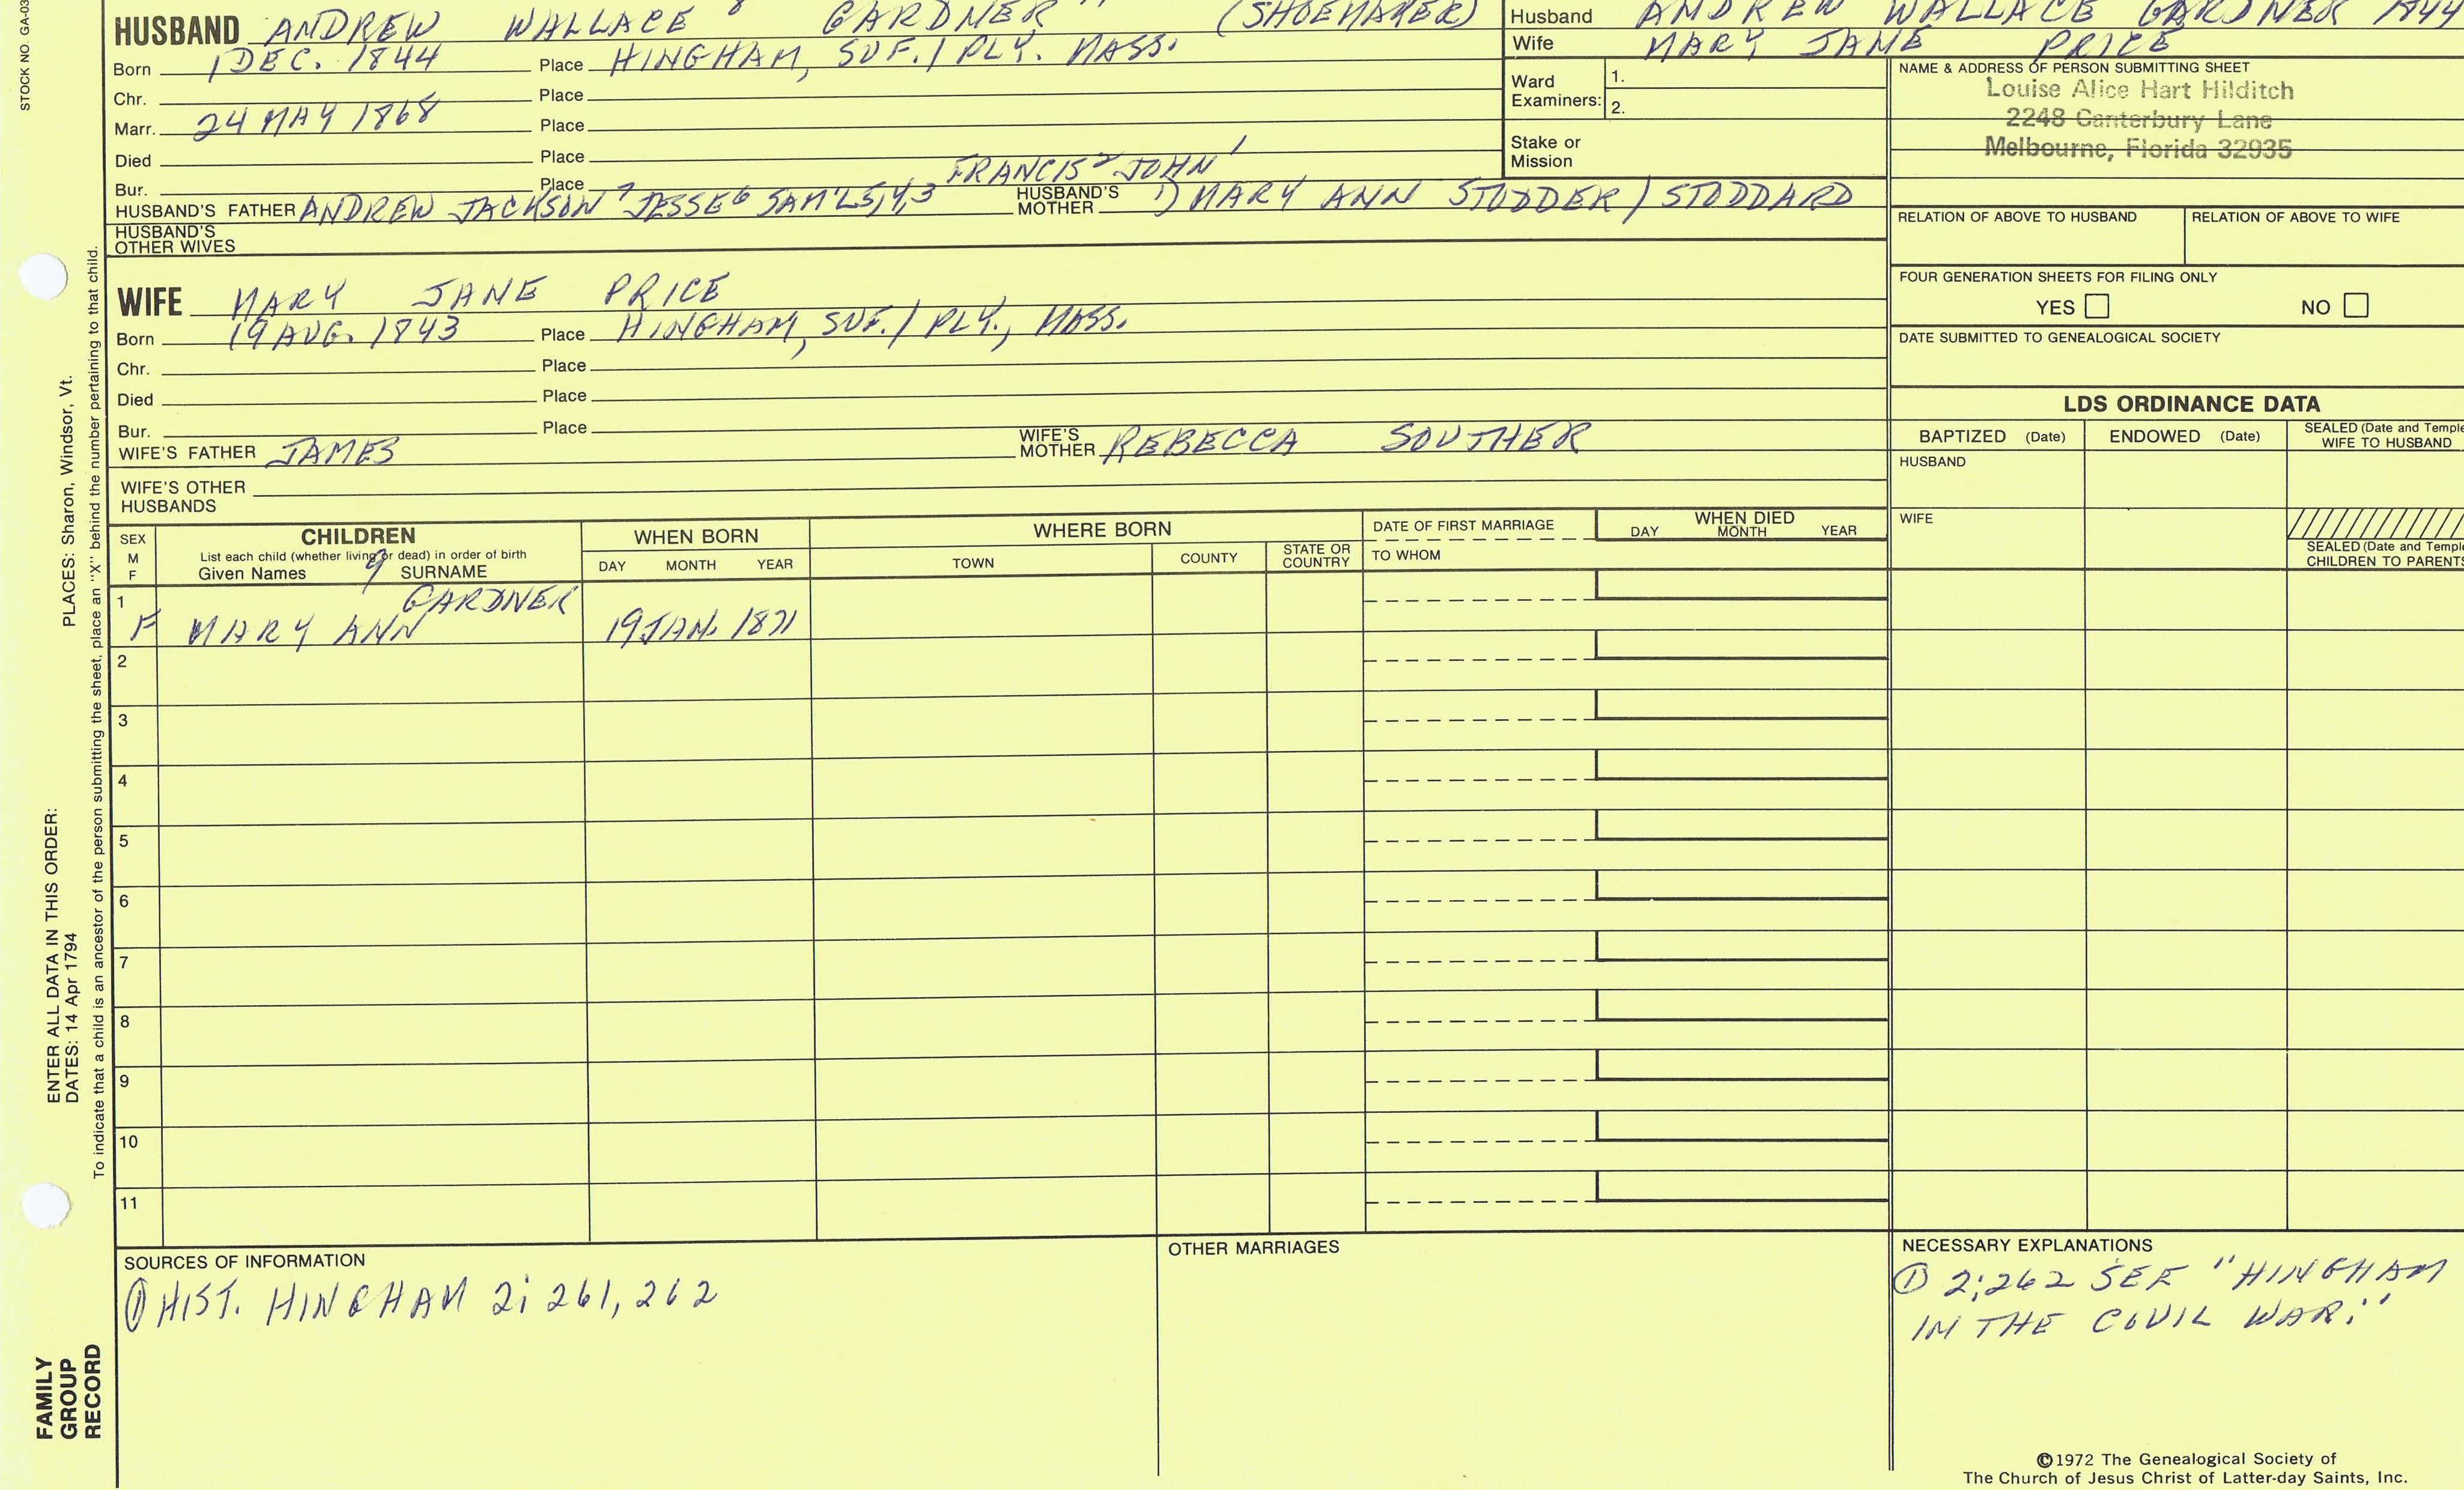 STOCK NO GA-03
HUSBAND ANDREW WALLACE 8 GARDNER (SHOEMAKER)
Born 1 DEC. 1844 Place HINGHAM, SUF. / PLY. MASS.
Chr. Place
Marr. 24 MAY 1868 Place
Died Place
Bur. Place
FRANCIS 2 JOHN 1
HUSBAND'S FATHER ANDREW JACKSON 7 JESSE 6 SAM'L 5,4,3 HUSBAND'S MOTHER 1) MARY ANN STODDER / STODDARD
HUSBAND'S OTHER WIVES
WIFE MARY JANE PRICE
Born 19 AUG. 1843 Place HINGHAM, SUF. / PLY., MASS.
Chr. Place
Died Place
Bur. Place
WIFE'S FATHER JAMES WIFE'S MOTHER REBECCA SOUTHER
WIFE'S OTHER HUSBANDS
Husband ANDREW WALLACE GARDNER 1844
Wife MARY JANE PRICE
Ward Examiners: 1.
2.
Stake or Mission
NAME & ADDRESS OF PERSON SUBMITTING SHEET
Louise Alice Hart Hilditch
2248 Canterbury Lane
Melbourne, Florida 32935
RELATION OF ABOVE TO HUSBAND RELATION OF ABOVE TO WIFE
FOUR GENERATION SHEETS FOR FILING ONLY
YES NO
DATE SUBMITTED TO GENEALOGICAL SOCIETY
LDS ORDINANCE DATA
BAPTIZED (Date) ENDOWED (Date) SEALED (Date and Temple
WIFE TO HUSBAND
HUSBAND
WIFE
SEALED (Date and Temple
CHILDREN TO PARENTS
SEX
M
F
CHILDREN
List each child (whether living or dead) in order of birth
Given Names 9 SURNAME
WHEN BORN
DAY MONTH YEAR
WHERE BORN
TOWN COUNTY STATE OR COUNTRY
DATE OF FIRST MARRIAGE
TO WHOM
WHEN DIED
DAY MONTH YEAR
1 GARDNER
F MARY ANN 19 JAN. 1871
2
3
4
5
6
7
8
9
10
11
SOURCES OF INFORMATION
① HIST. HINGHAM 2; 261, 262
OTHER MARRIAGES
NECESSARY EXPLANATIONS
① 2;262 SEE "HINGHAM
IN THE CIVIL WAR."
©1972 The Genealogical Society of
The Church of Jesus Christ of Latter-day Saints, Inc.
PLACES: Sharon, Windsor, Vt.
ENTER ALL DATA IN THIS ORDER:
DATES: 14 Apr 1794
To indicate that a child is an ancestor of the person submitting the sheet, place an "X" behind the number pertaining to that child.
FAMILY
GROUP
RECORD